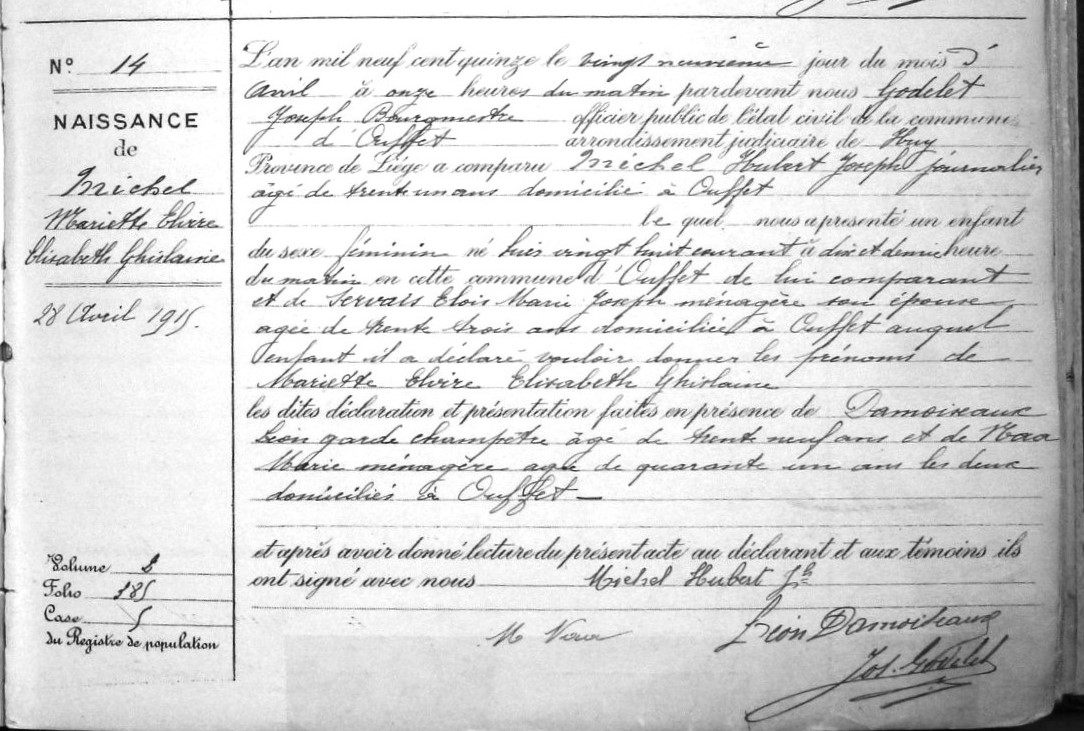 N° 14
NAISSANCE
de
Michel
Mariette Elvire
Elisabeth Ghislaine
28 Avril 1915.
Volume 2
Folio 385
Case 5
du Registre de population
L'an mil neuf cent quinze le vingt neuvième jour du mois d'
avril à onze heures du matin pardevant nous Godelet
Joseph Bourgmestre officier public de l'état civil de la commune
d'Ouffet arrondissement judiciaire de Huy
Province de Liége a comparu Michel Hubert Joseph journalier
âgé de trente un ans domicilié à Ouffet
le quel nous a presenté un enfant
du sexe féminin né hier vingt huit courant à dix et demie heure
du matin en cette commune d'Ouffet de lui comparant
et de Servais Eloïs Marie Joseph ménagère son épouse
agée de trente trois ans domiciliée à Ouffet auquel
enfant il a déclaré vouloir donner les prénoms de
Mariette Elvire Elisabeth Ghislaine
les dites déclaration et présentation faites en présence de Damoiseaux
Léon garde champêtre âgé de trente neuf ans et de
Marie ménagère agée de quarante un ans les deux
domiciliés à Ouffet —
et après avoir donné lecture du présent acte au déclarant et aux témoins ils
ont signé avec nous Michel Hubert Jh
M
Léon Damoiseaux
Jos. Godelet